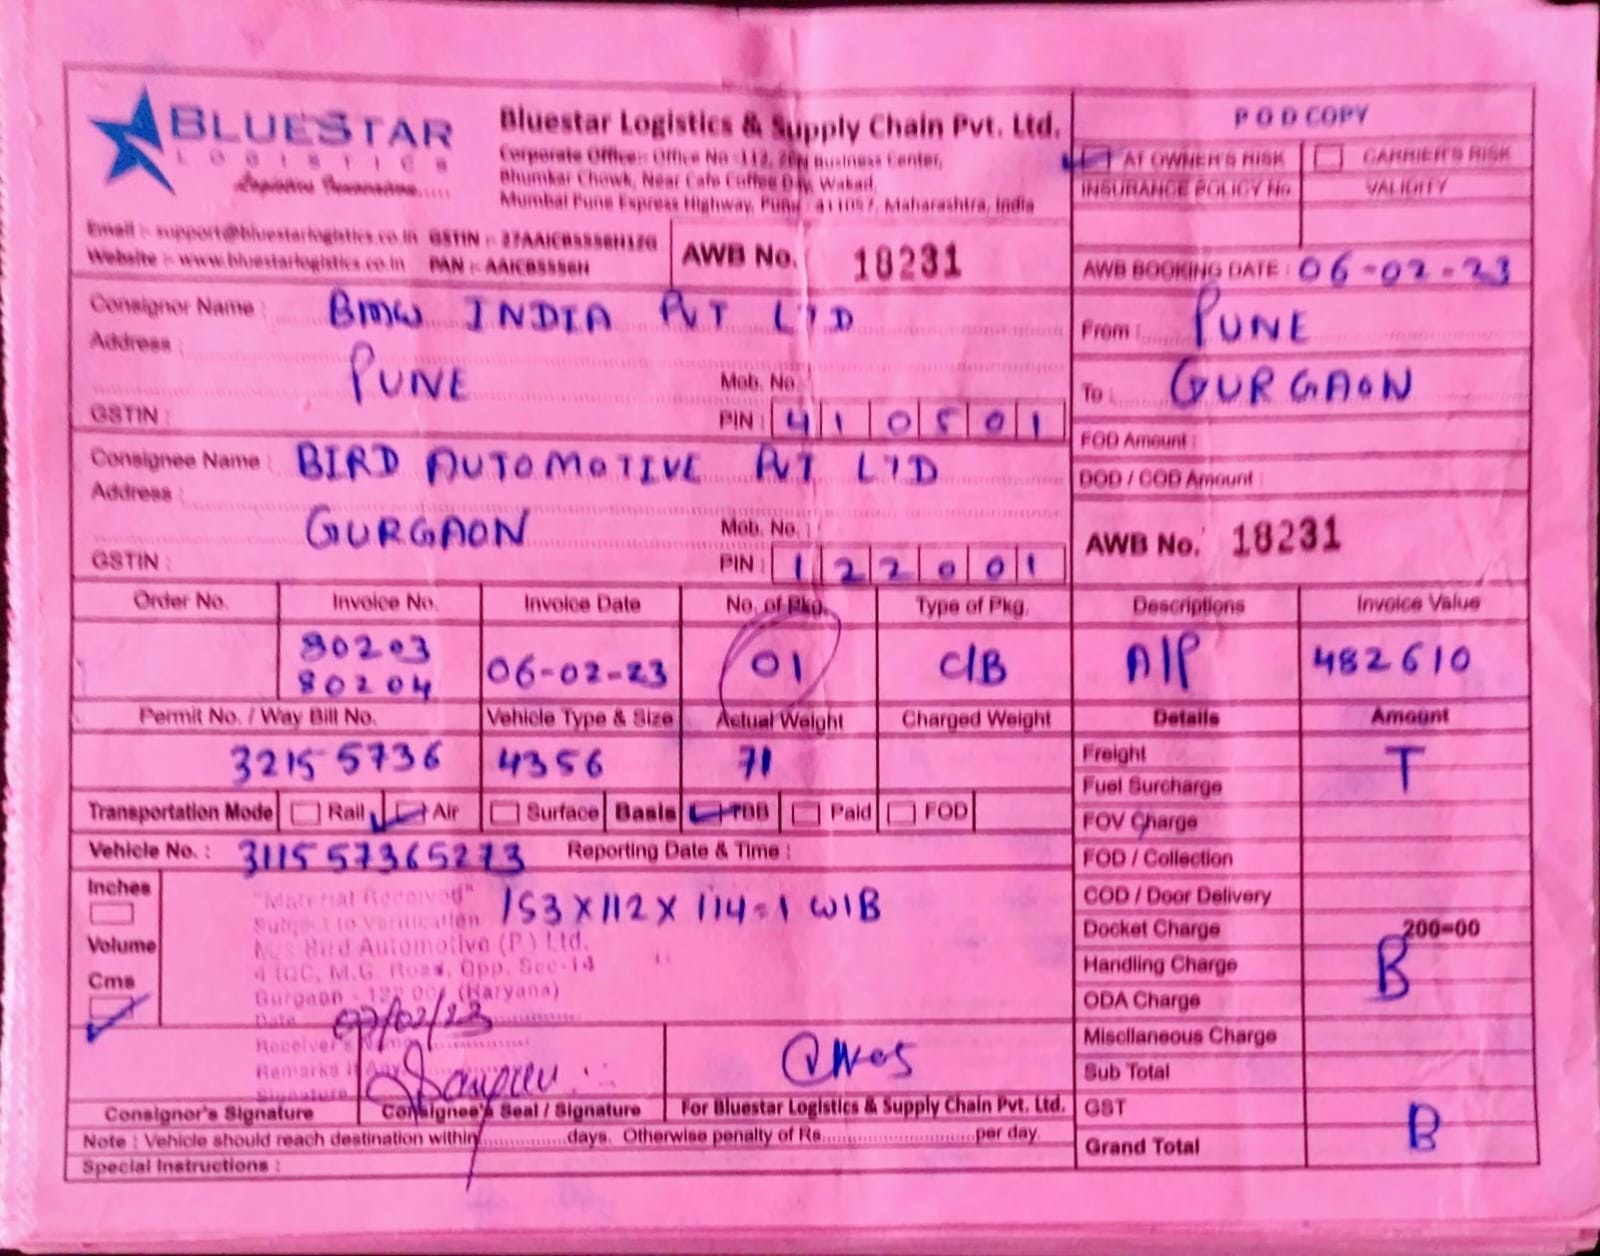 BLUESTAR
LOGISTICS
Bluestar Logistics & Supply Chain Pvt. Ltd.
Corporate Office:- Office No -112, Business Center,
Bhumkar Chowk, Near Cafe Coffee Day, Wakad,
Mumbai Pune Express Highway, Pune - 411057, Maharashtra, India
Email :- support@bluestarlogistics.co.in GSTIN :-
Website :- www.bluestarlogistics.co.in PAN :-
AWB No. 18231
POD COPY
AT OWNER'S RISK CARRIER'S RISK
INSURANCE POLICY No. VALIDITY
AWB BOOKING DATE : 06-02-23
Consignor Name : BMW INDIA PVT LTD
Address :
PUNE Mob. No.
GSTIN : PIN : 410501
From : PUNE
To : GURGAON
Consignee Name : BIRD AUTOMOTIVE PVT LTD
Address :
GURGAON Mob. No. :
GSTIN : PIN : 122001
FOD Amount :
DOD / COD Amount :
AWB No. 18231
Order No. Invoice No. Invoice Date No. of Pkg. Type of Pkg. Descriptions Invoice Value
80203
80204 06-02-23 01 C/B A/P 482610
Permit No. / Way Bill No. Vehicle Type & Size Actual Weight Charged Weight Details Amount
32155736 4356 71
Transportation Mode Rail Air Surface Basis TBB Paid FOD
Vehicle No. : 311557365273 Reporting Date & Time :
Inches
Volume
Cms
153 X 112 X 114 = 1 W/B
"Material Received"
Subject to Verification
M/s Bird Automotive (P) Ltd.
M.G. Road, Opp. Sec-14
Gurgaon - 122 001 (Haryana)
Date 07/02/23
Receiver's Name
Remarks if Any
Signature
Freight T
Fuel Surcharge
FOV Charge
FOD / Collection
COD / Door Delivery
Docket Charge 200=00
Handling Charge B
ODA Charge
Miscllaneous Charge
Sub Total
GST B
Grand Total
Consignor's Signature Consignee's Seal / Signature For Bluestar Logistics & Supply Chain Pvt. Ltd.
Note : Vehicle should reach destination within..................days. Otherwise penalty of Rs..............................per day.
Special Instructions :